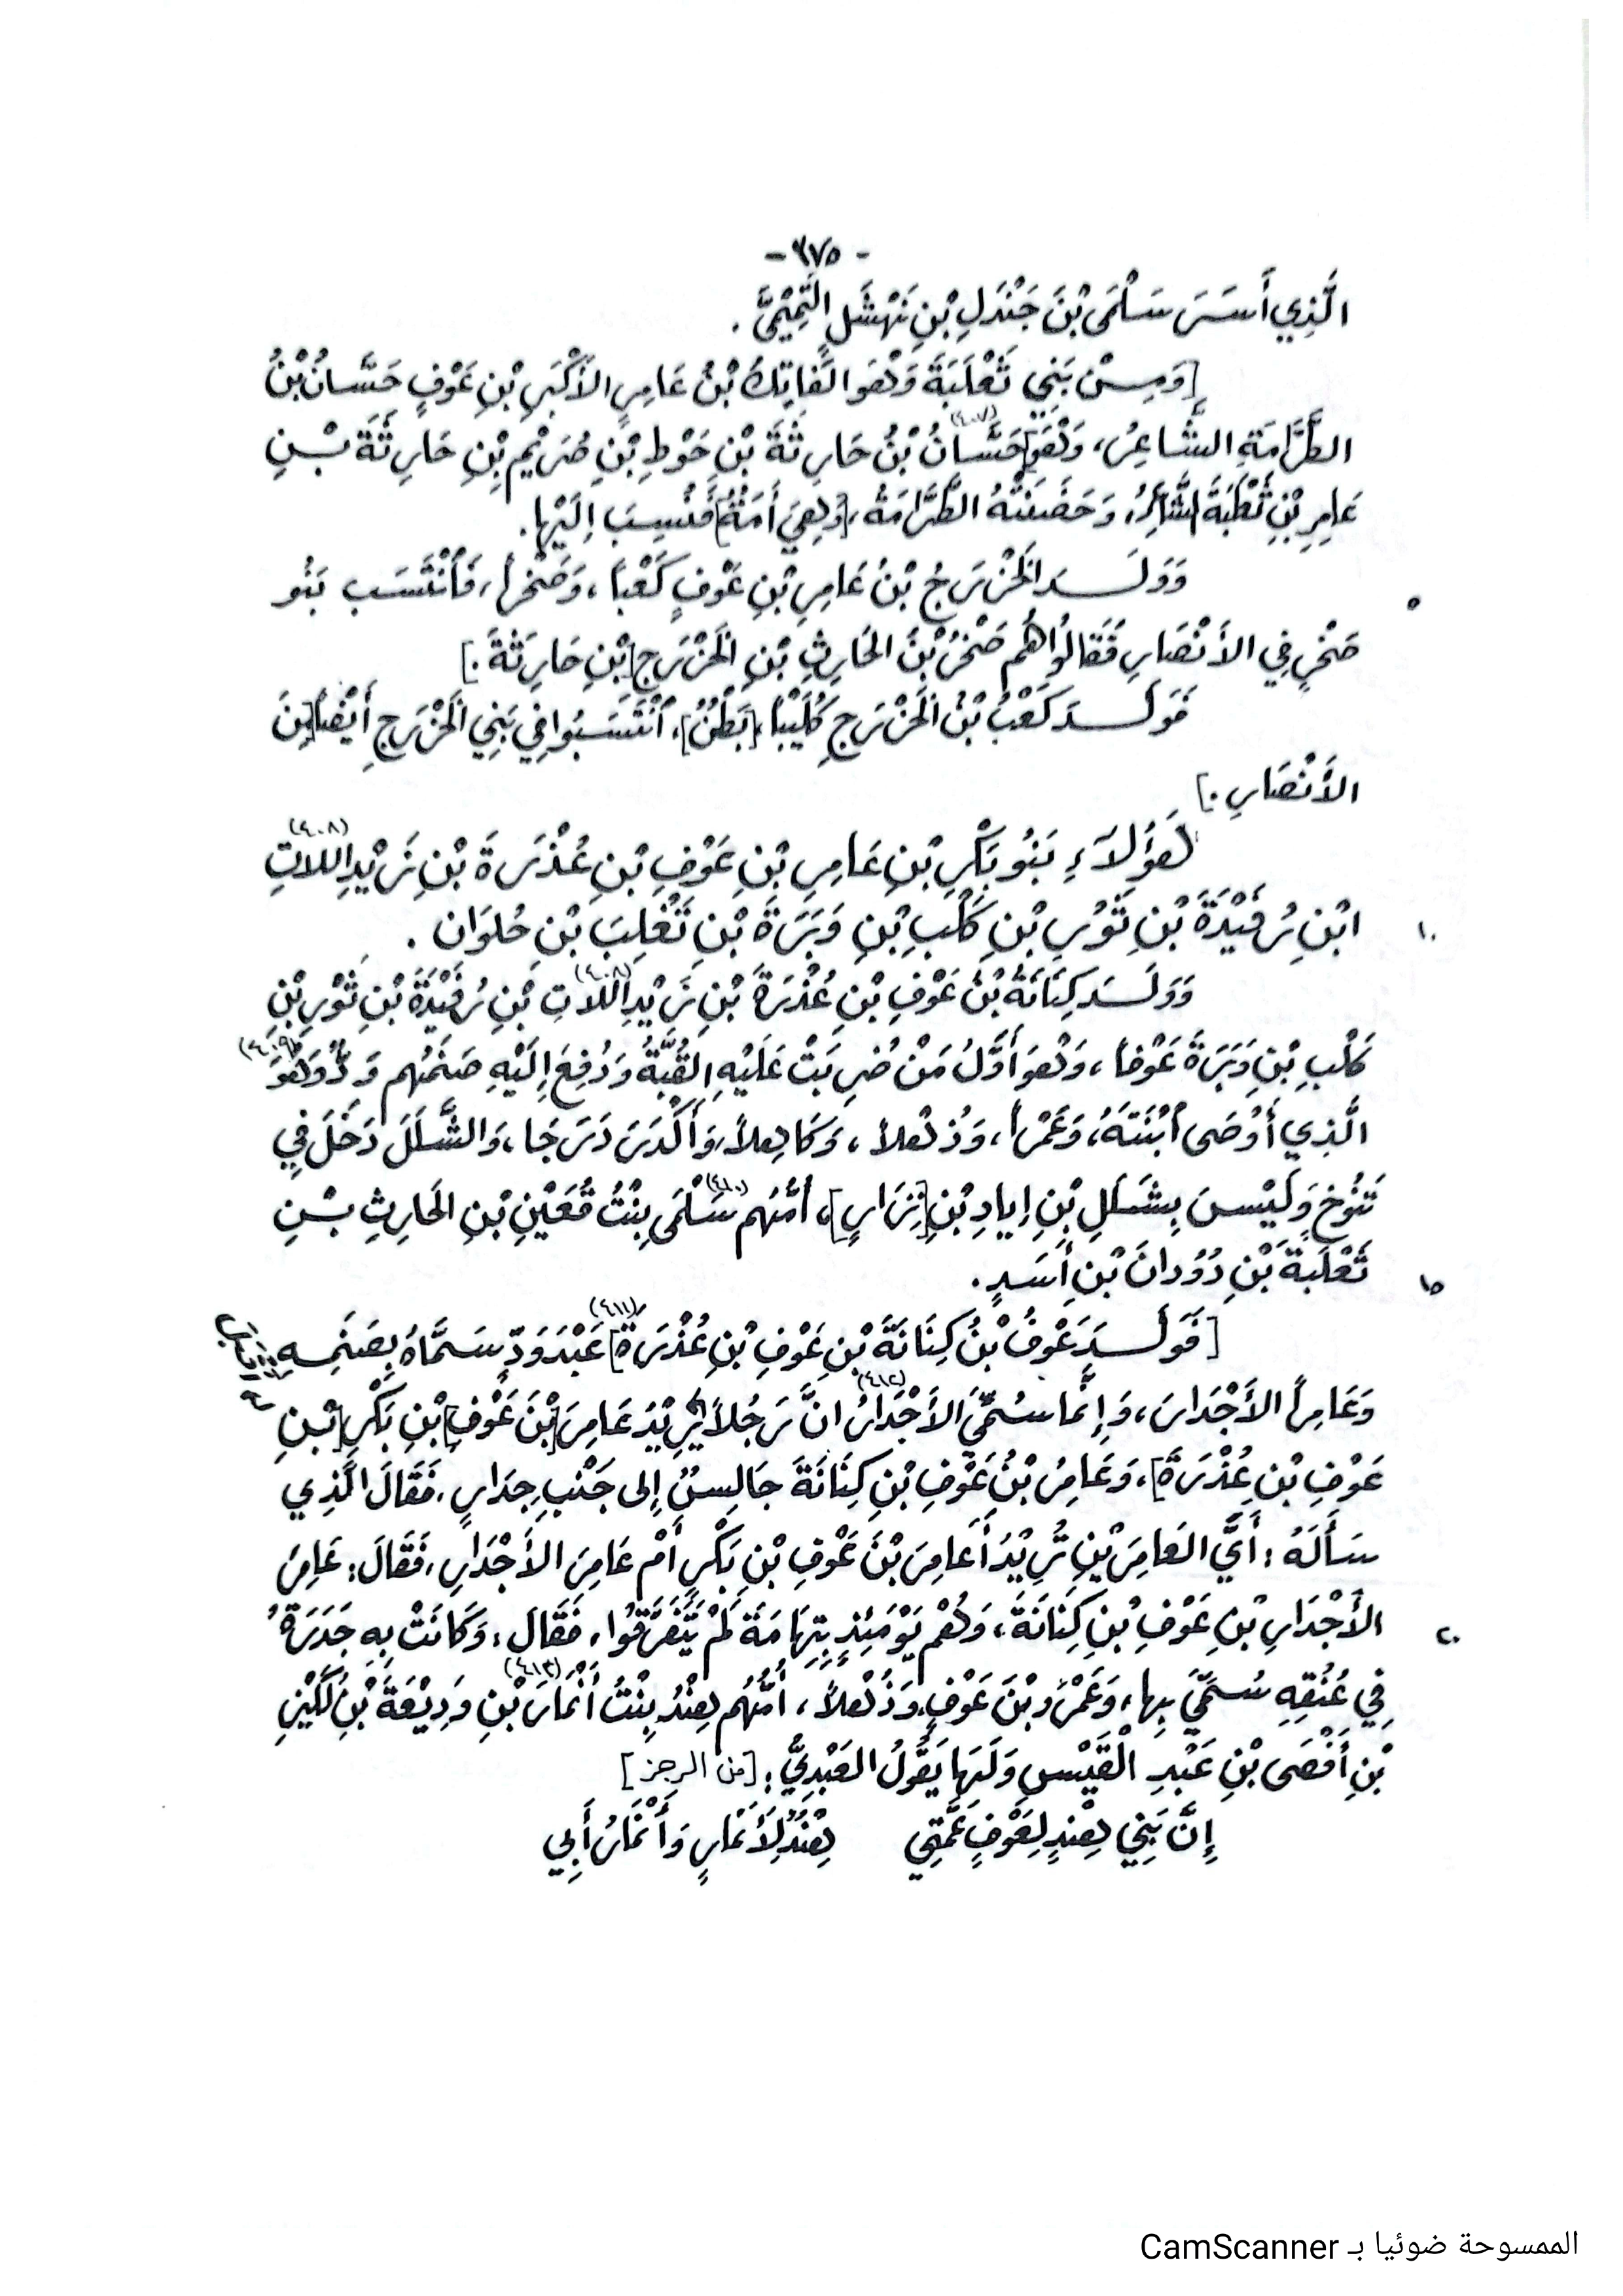 - ٣٧٥ -
الَّذِي أَسَرَ سَلْمَى بْنَ جَنْدَلِ بْنِ نَهْشَلٍ التَّمِيْمِيَّ .
[وَمِنْ بَنِي ثَعْلَبَةَ وَهُوَ الفَاتِكُ بْنُ عَامِرِ الأَكْبَرِ بْنِ عَوْفٍ حَسَّانُ بْنُ
الطَّرَامَةِ الشَّاعِرُ، وَهُوَ] (٤٠٧) حَسَّانُ بْنُ حَارِثَةَ بْنِ حَوْطِ بْنِ صُرَيْمِ بْنِ حَارِثَةَ بْنِ
عَامِرِ بْنِ ثَعْلَبَةَ الشَّاعِرُ، وَحَضَنَتْهُ الطَّرَامَةُ، [وَهِيَ أَمَةٌ] فَنُسِبَ إِلَيْهَا.
وَوَلَدَ الخَزْرَجُ بْنُ عَامِرِ بْنِ عَوْفٍ كَعْباً، وَصَخْراً، فَٱنْتَسَبَ بَنُو
٥
صَخْرٍ فِي الأَنْصَارِ فَقَالُوا هُم صَخْرُ بْنُ الحَارِثِ بْنِ الخَزْرَجِ [بْنِ حَارِثَةَ .]
فَوَلَدَ كَعْبُ بْنُ الخَزْرَجِ كُلَيْباً، [بَطْنٌ]، ٱنْتَسَبُوا فِي بَنِي الخَزْرَجِ أَيْضاً [مِنَ
الأَنْصَارِ .]
هَؤُلاَءِ بَنُو بَكْرِ بْنِ عَامِرِ بْنِ عَوْفِ بْنِ عُذْرَةَ بْنِ زَيْدِ اللاتِ (٤٠٨)
ابْنِ رُفَيْدَةَ بْنِ ثَوْرِ بْنِ كَلْبِ بْنِ وَبَرَةَ بْنِ تَغْلِبَ بْنِ حُلوَان .
١٠
وَوَلَدَ كِنَانَةُ بْنُ عَوْفِ بْنِ عُذْرَةَ بْنِ زَيْدِ اللاتِ (٤٠٨) بْنِ رُفَيْدَةَ بْنِ ثَوْرِ بْنِ
كَلْبِ بْنِ وَبَرَةَ عَوْفاً، وَهُوَ أَوَّلُ مَنْ ضُرِبَتْ عَلَيْهِ القُبَّةُ وَدُفِعَ إِلَيْهِ صَنَمُهُم وَدٌّ (٤٠٩) وَهُوَ
الَّذِي أَوْصَى ٱبْنَتَهُ، وَعَمْراً، وَذُهْلاً، وَكَاهِلاً، وَأَكْدَرَ دَرَجَا، وَالشَّلَلَ دَخَلَ فِي
تَنُوخَ وَلَيْسَ بِشَلَلِ بْنِ إِيادِ بْنِ [نِزَارٍ]، أُمُّهُم (٤١٠) سَلْمَى بِنْتُ قُعَيْنِ بْنِ الحَارِثِ بْنِ
ثَعْلَبَةَ بْنِ دُوْدانَ بْنِ أَسَدٍ .
١٥
[فَوَلَدَ عَوْفُ بْنُ كِنَانَةَ بْنِ عَوْفِ بْنِ عُذْرَةَ] (٤١١) عَبْدَ وَدٍّ سَمَّاهُ بِصَنَمِهِ
وَعَامِراً الأَجْدَارَ، وَإِنَّما سُمِّيَ الأَجْدَارُ (٤١٢) انَّ رَجُلاً يُرِيْدَ عَامِرَ [بْنَ عَوْفِ] بْنِ بَكْرِ [بْنِ
عَوْفِ بْنِ عُذْرَةَ]، وَعَامِرُ بْنُ عَوْفِ بْنِ كِنَانَةَ جَالِسٌ إِلى جَنْبِ جِدَارٍ، فَقَالَ الَّذِي
سَأَلَهُ : أَيَّ العَامِرَيْنِ تُرِيْدُ أَعامِرَ بْنَ عَوْفِ بْنِ بَكْرٍ أَمْ عَامِرَ الأَجْدَارِ، فَقَالَ: عَامِرَ
الأَجْدَارِ بْنِ عَوْفِ بْنِ كِنَانَةَ، وَهُم يَوْمَئِذٍ بِتِهَامَةَ لَمْ يَتَفَرَّقُوا، فَقَالَ: وَكَانَتْ بِهِ جَدَرَةٌ
٢٠
فِي عُنُقِهِ سُمِّيَ بِها، وَعَمْرَو بْنَ عَوْفٍ، وَذُهْلاً، أُمُّهُم هِنْدُ بِنْتُ (٤١٣) أَنْمَارَ بْنِ وَدِيْعَةَ بْنِ لُكَيْزِ
بْنِ أَفْصَى بْنِ عَبْدِ القَيْسِ وَلَهَا يَقُولُ العَبْدِيُّ : [من الرجز]
إِنَّ بَنِي هِنْدٍ لِعَوْفٍ عَمَّتِي هِنْدٌ لِأَنْمَارٍ وَأَنْمَارُ أَبِي
الممسوحة ضوئيا بـ CamScanner